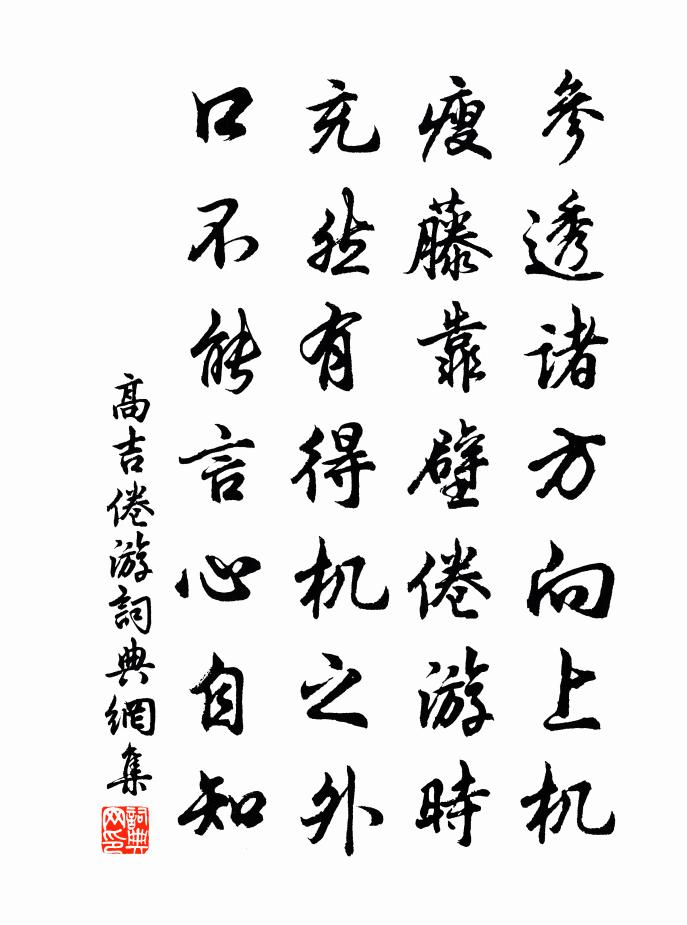 參透诸方向上机
瘦藤靠壁倦游時
充然有得机之外
口不能言心自知
高吉倦游詞典網集
詞典网印